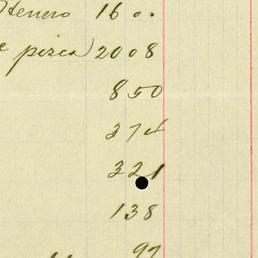 Henero 16 00
pisca) 2008
850
374
321
138
97